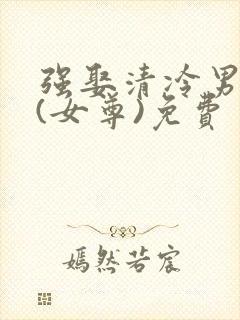 强娶清冷男
(女尊)免费
嫣然若宸